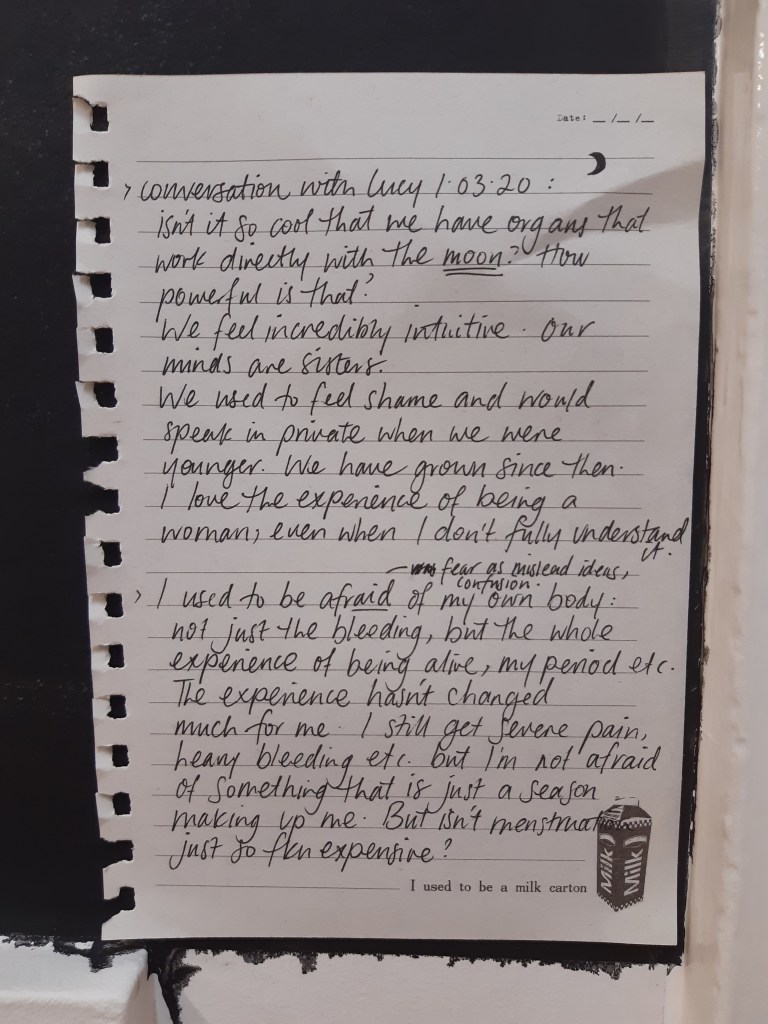 Date: _ /_ /_
> conversation with Lucy 1.03.20 :
isn't it so cool that we have organs that
work directly with the moon? How
powerful is that?
We feel incredibly intuitive. Our
minds are sisters.
We used to feel shame and would
speak in private when we were
younger. We have grown since then.
I love the experience of being a
woman, even when I don't fully understand
it.
– fear as mislead ideas,
confusion.
> I used to be afraid of my own body:
not just the bleeding, but the whole
experience of being alive, my period etc.
The experience hasn't changed
much for me. I still get severe pain,
heavy bleeding etc. but I'm not afraid
of something that is just a season
making up me. But isn't menstruation
just so fkn expensive?
I used to be a milk carton
Milk
Milk